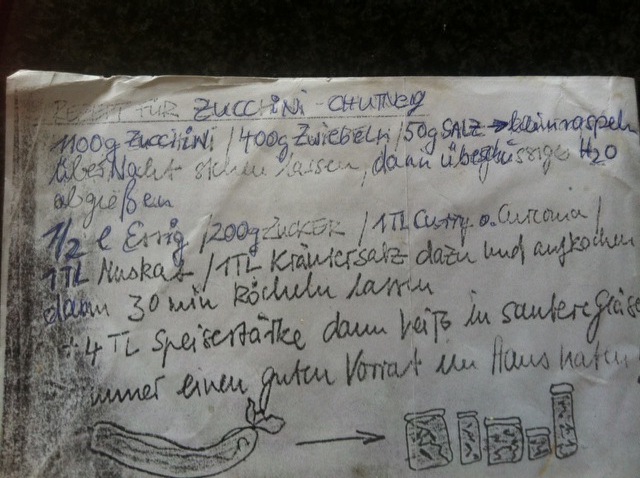 REZEPT FÜR ZUCCHINI-CHUTNEY
1100g ZUCCHINI / 400g Zwiebeln / 50g SALZ → kleinraspeln
über Nacht stehen lassen, dann überschüssiges H2O
abgießen
1/2 l Essig / 200g ZUCKER / 1TL Curry o. Curcuma /
1TL Muskat / 1TL Kräutersalz dazu und aufkochen
dann 30 min köcheln lassen
+ 4 TL Speisestärke dann heiß in saubere Gläser
immer einen guten Vorrat im Haus haten